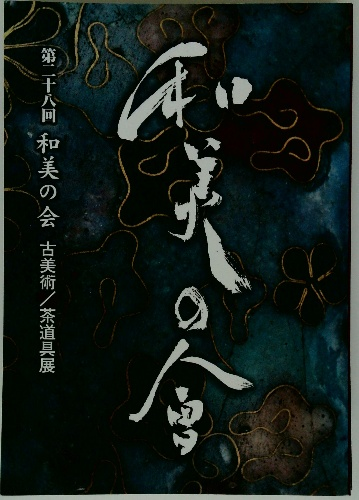 和美の會
第二十八回 和美の会 古美術／茶道具展